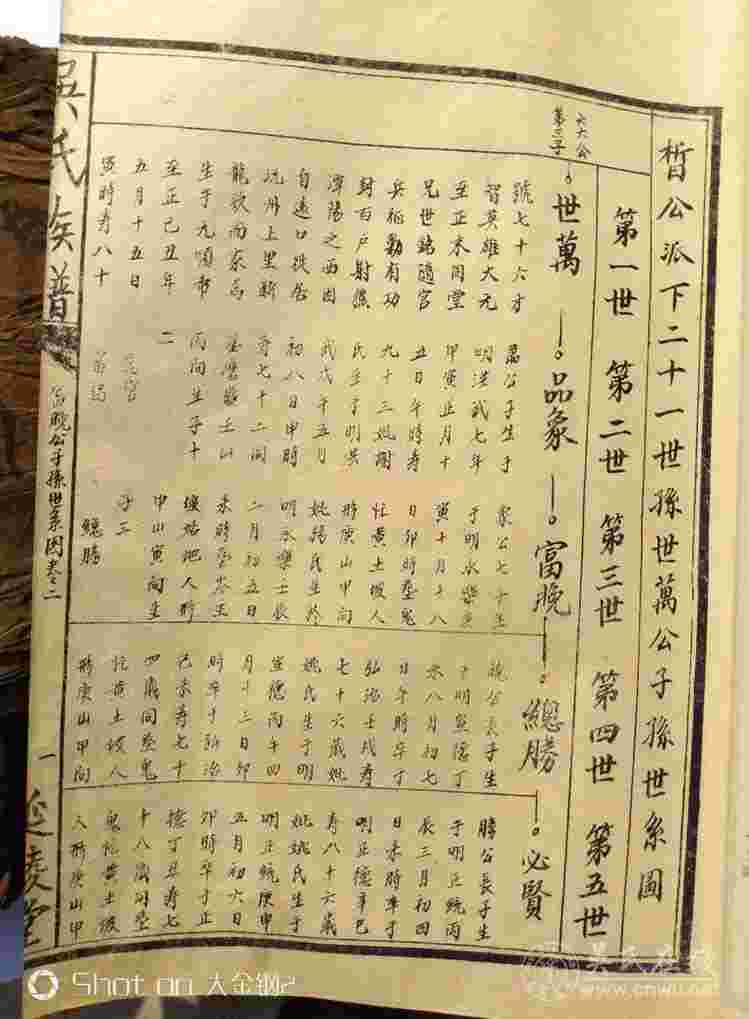 皙公派下二十一世孫世萬公子孫世系圖
第一世 第二世 第三世 第四世 第五世
六六公
第三子
世萬
品象
富晚
總勝
必賢
號七十六才
智英雄大元
至正末同堂
兄世銘隨官
兵征勦有功
封百户
潭陽之西因
自遠口
沅州上里
生于元順帝
至正己丑年
五月十五日
寅時寿八十
二
公子生于
明洪武七年
甲寅正月十
丑日午時寿
九十三妣謝
氏生于明洪
武戊午五月
初八日申時
寿七十二同
丙向生子十
象公七子生
于明永樂庚
寅十月十八
日卯時塟鬼
忙黄土坡人
形庚山甲向
妣楊氏生於
明永樂壬辰
二月初五日
未時塟岑
人形
申山寅向生
子三
總勝
晚公長子生
于明宣德丁
未八月初七
日午時卒丁
弘治壬戌寿
七十六歲妣
姚氏生于明
宣德丙午四
月十三日卯
時卒于弘治
己未寿七十
四歲同塟鬼
忙黄土坡人
形庚山甲向
勝公長子生
于明正統丙
辰三月初四
日未時卒于
明正德辛巳
寿八十六歲
妣姚氏生于
明正統庚申
五月初六日
卯時卒于正
德丁丑寿七
十八歲同塟
鬼忙黄土坡
人形庚山甲
吳氏族譜
富晚公子孫世系图卷之二
一
延陵堂
Shot on 大金钢2
吴氏在线
www.cnwu.net